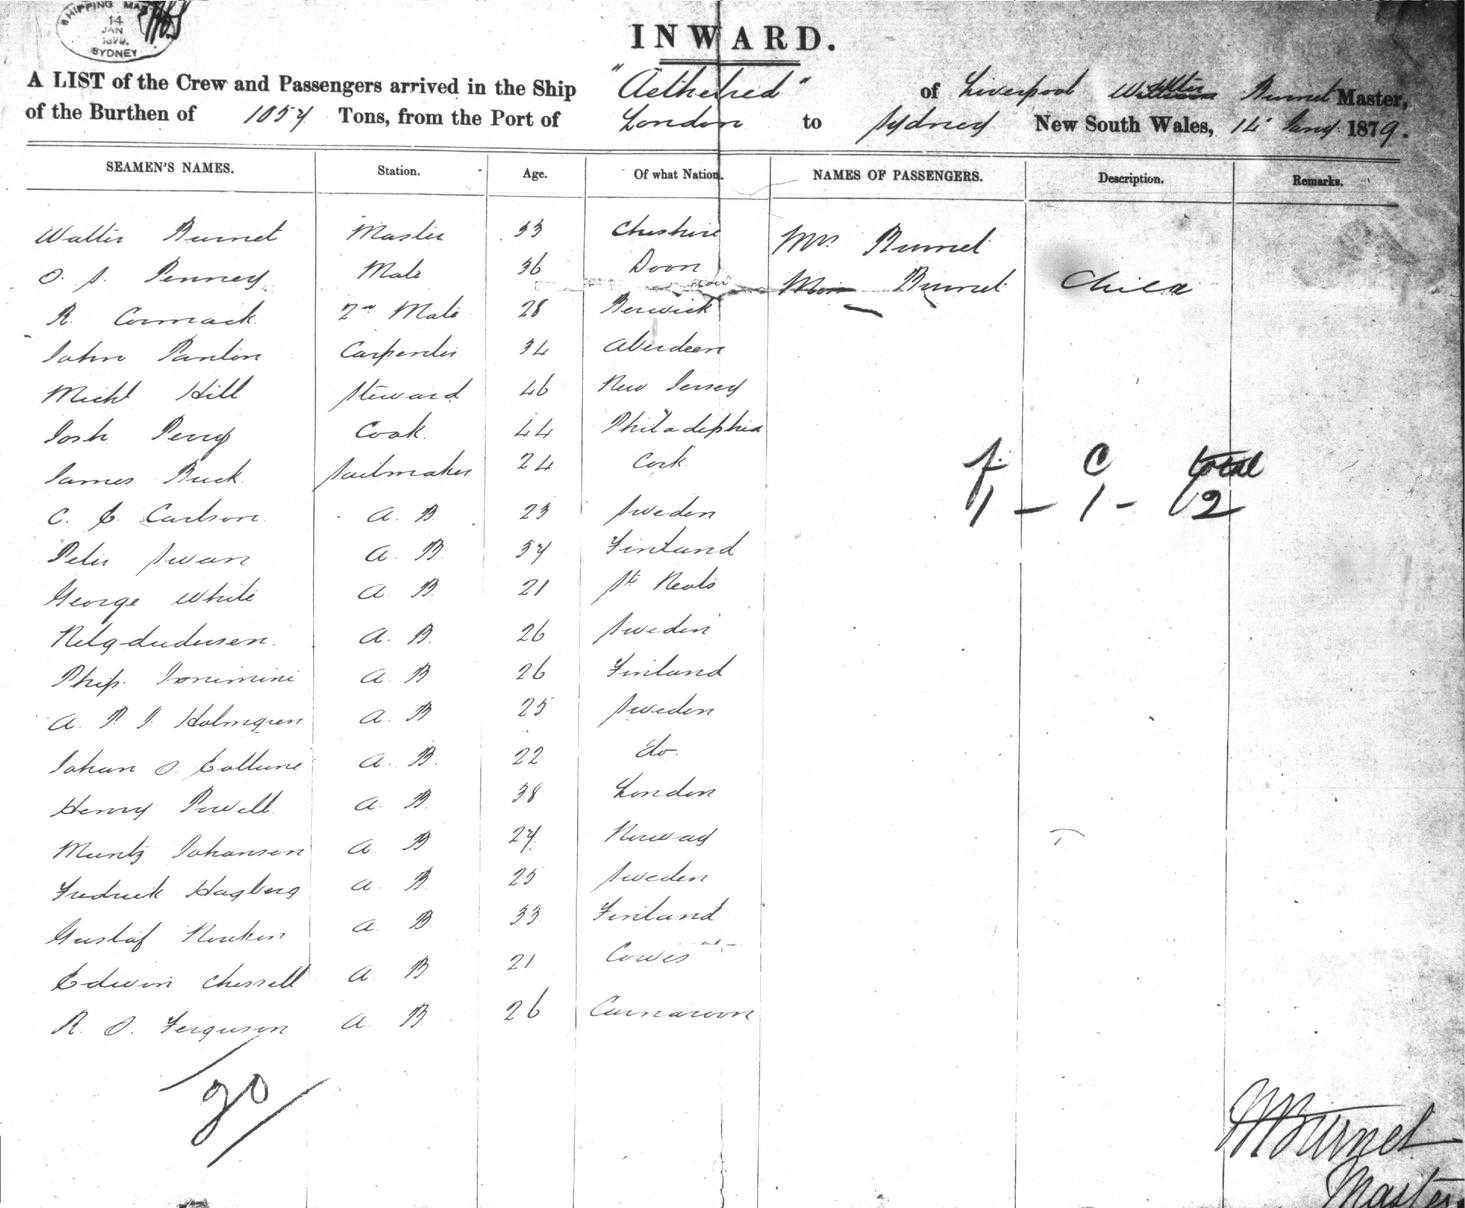 SHIPPING MAS
14
JAN
SYDNEY
INWARD.
A LIST of the Crew and Passengers arrived in the Ship "Aethelred" of Liverpool Walter Burnet Master,
of the Burthen of 1057 Tons, from the Port of London to Sydney New South Wales, 14 Jany 1879.
SEAMEN'S NAMES. Station. Age. Of what Nation. NAMES OF PASSENGERS. Description. Remarks.
Walter Burnet Master 53 Cheshire Mrs Burnet
O. S. Penney Mate 36 Burnet Child
R Cormack 2nd Mate 28 Berwick
John Panton Carpenter 34 Aberdeen
Michl Hill Steward 46 New Jersey
Josh Perry Cook 44 Philadelphia
James Buck Sailmaker 24 Cork
f C total
1 - 1 - 2
C. E. Carlson A. B 23 Sweden
Peter Swan A. B 37 Finland
George White A B 21 St Neots
A. B. 26 Sweden
Phip. A B 26 Finland
A. P. J. Holmgren A. B 25 Sweden
Johan O. A. B. 22 do
Henry Powell A. B 38 London
Johanson A B 27 Norway
Fredrick Hagberg A. B 25 Sweden
Gustaf A B 33 Finland
Edwin Chessell A. B 21 Cowes
R. O. Ferguson A. B 26 Carnarvon
20
W Burnet
Master